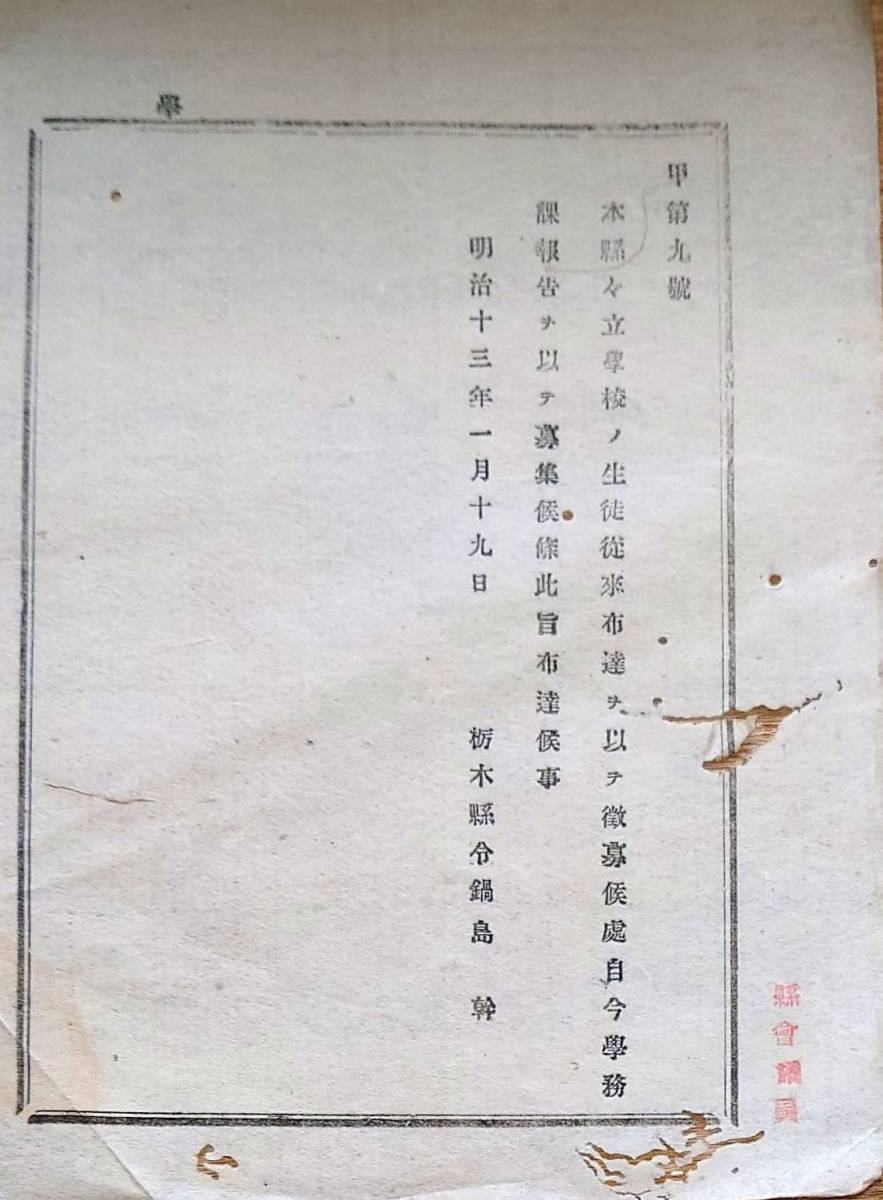 學
甲第九號
本縣々立學校ノ生徒從來布達ヲ以テ徵募候處自今學務
課報告ヲ以テ募集候條此旨布達候事
明治十三年一月十九日
栃木縣令鍋島 幹
縣會議員